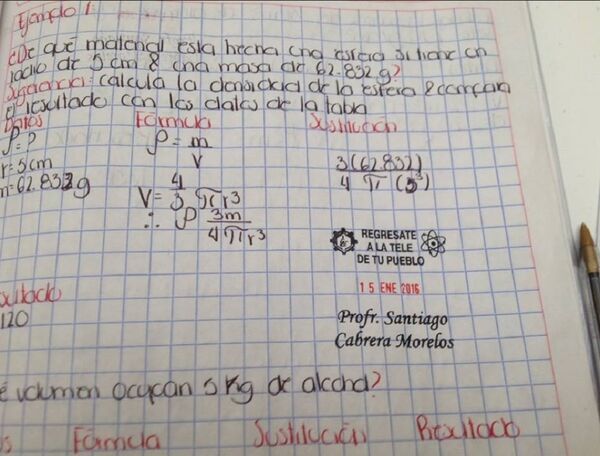 Ejemplo 1
¿De qué material esta hecha una esfera si tiene un
radio de 5 cm & una masa de 62.832 g?
Sugerencia: calcula la densidad de la esfera & compara
el resultado con los datos de la tabla
Datos Fórmula Sustitución
ρ=?
r=5cm
m=62.832g
ρ = m/V
V= 4/3 πr³
∴ ρ 3m/4πr³
3(62.832)/4 π (5³)
REGRESATE
A LA TELE
DE TU PUEBLO
15 ENE 2016
Profr. Santiago
Cabrera Morelos
sultado
120
é volumen ocupan 5 kg de alcohol?
s Fórmula Sustitución Resultado